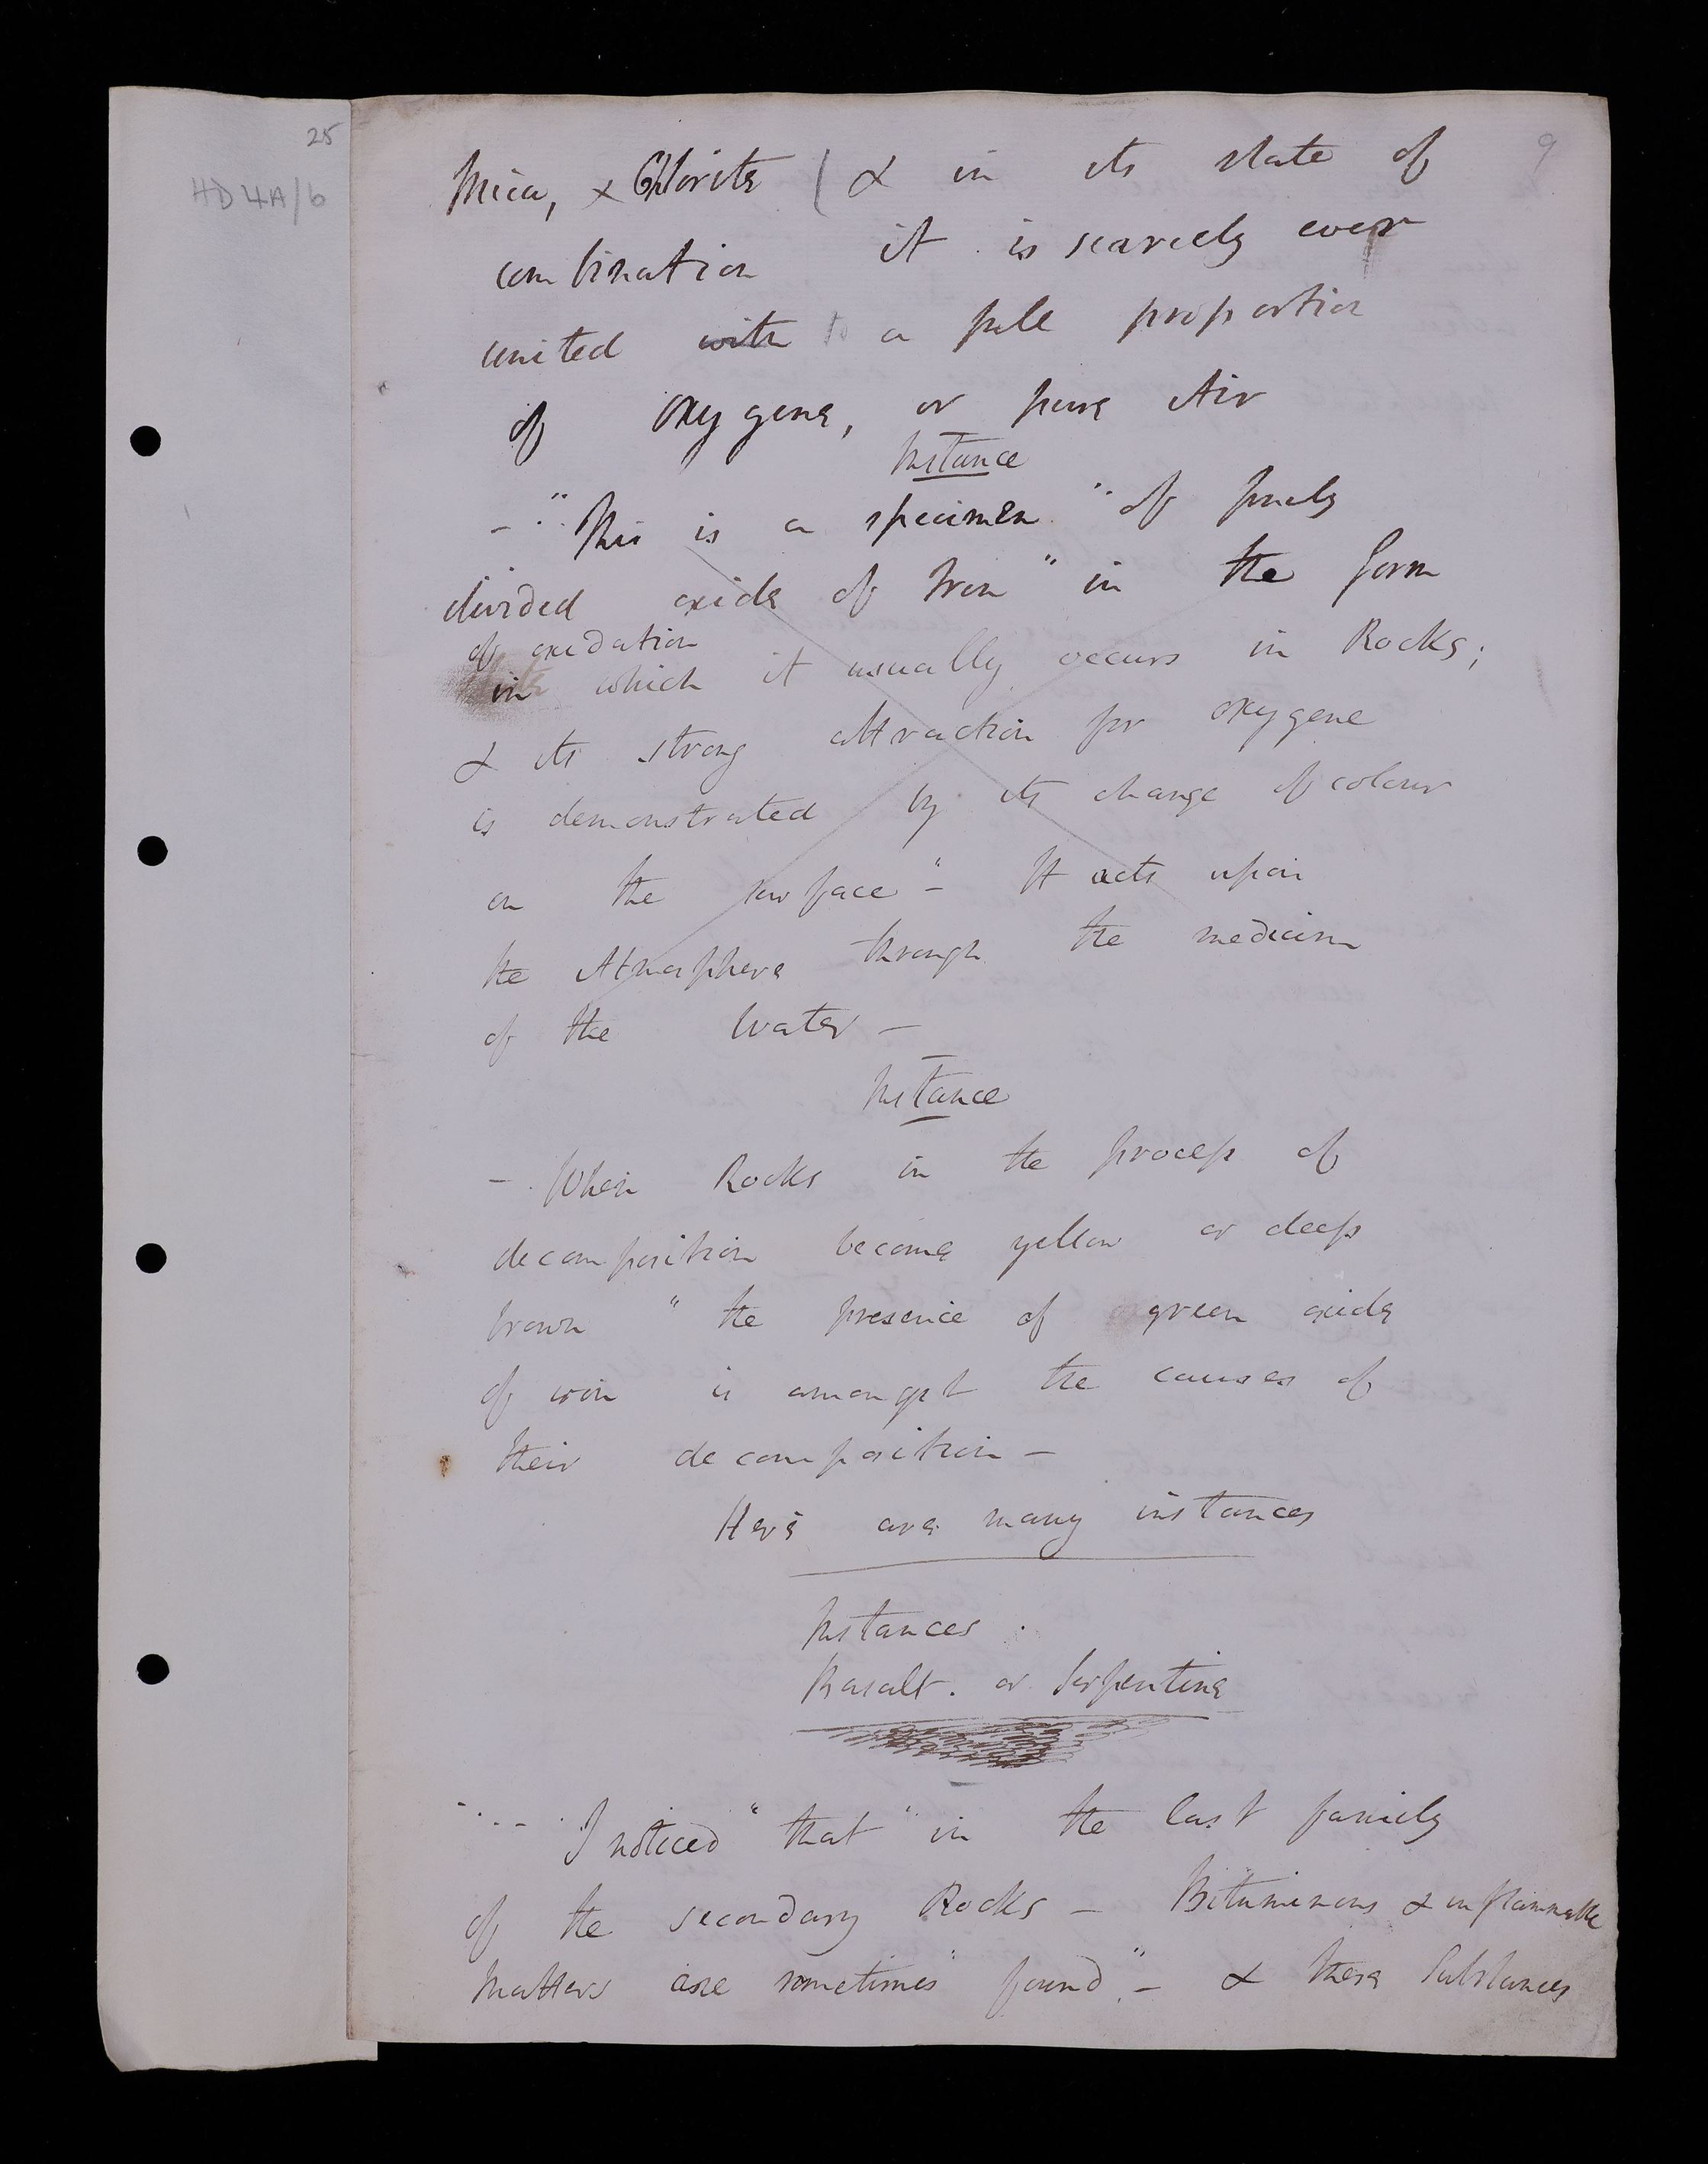 25
HD 4A/6
9
Mica, & Chlorite ( & in its state of
combination it is scarcely ever
united with to a full proportion
of oxygene, or pure Air
Instance
- " This is a specimen " of finely
divided oxide of Iron " in the form
of oxidation
in which it usually occurs in Rocks;
& its strong attraction for oxygene
is demonstrated by its change of colour
on the surface " - It acts upon
the Atmosphere through the medium
of the Water -
Instance
- When Rocks in the process of
decomposition become yellow or deep
brown " the presence of green oxide
of iron is amongst the causes of
their decomposition -
Here are many instances
Instances.
Basalt. or Serpentine
- - I noticed " that " in the last family
of the secondary Rocks - Bituminous & inflammable
matters are sometimes found " - & these Substances